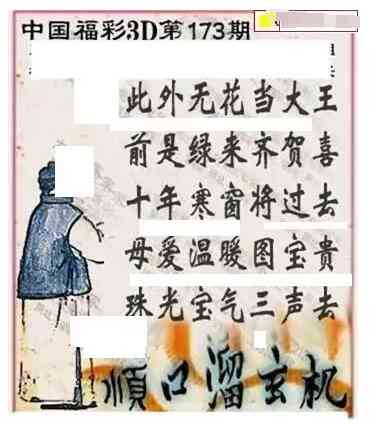 中国福彩3D第173期
此外无花当大王
前是绿来齐贺喜
十年寒窗将过去
母爱温暖图宝贵
珠光宝气三声去
顺口溜玄机